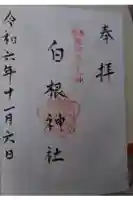 奉拝
白根神社
令和六年十一月六日